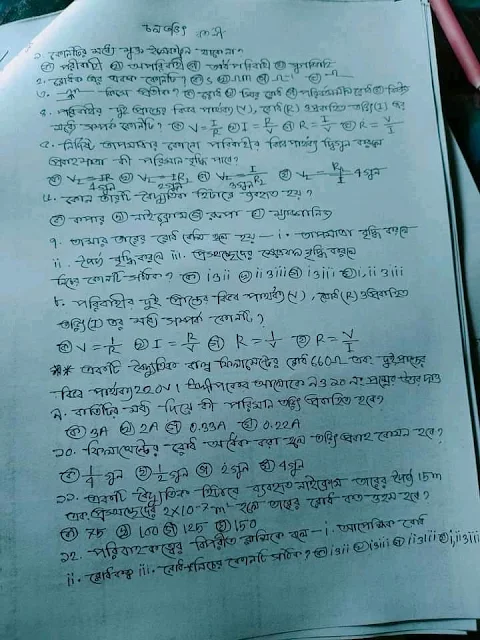 চল তড়িৎ
১. কোনটির মধ্যে মুক্ত ইলেকট্রন থাকে না?
ক) পরিবাহী খ) অপরিবাহী গ) অর্ধ পরিবাহী ঘ) সুপরিবাহী
২. রোধের একক কোনটি?
৩. কিসের প্রতীক?
৪. পরিবাহীর দুই প্রান্তের বিভব পার্থক্য (V), রোধ (R) ও প্রবাহিত তড়িৎ (I) এর
মধ্যে সম্পর্ক কোনটি? ক) V = I/R খ) I = R/V গ) R = I/V ঘ) R = V/I
৫. নির্দিষ্ট তাপমাত্রার কোনো পরিবাহীর বিভব পার্থক্য দ্বিগুন করলে
প্রবাহমাত্রা কী পরিমান বৃদ্ধি পাবে?
4গুন 2গুন 3গুন 4গুন
৬. কোন তারটি বৈদ্যুতিক হিটারে ব্যবহৃত হয়?
ক) তামার খ) নাইক্রোম গ) রূপা ঘ)
৭. তামার তারের রোধ বেশি হবে যদি – i. তাপমাত্রা বৃদ্ধি করলে
ii. দৈর্ঘ্য বৃদ্ধি করলে iii. প্রস্থচ্ছেদের ক্ষেত্রফল বৃদ্ধি করলে
নিচের কোনটি সঠিক? ক) i ও ii খ) ii ও iii গ) i ও iii ঘ) i, ii ও iii
৮. পরিবাহীর দুই প্রান্তের বিভব পার্থক্য (V), রোধ (R) ও প্রবাহিত
তড়িৎ (I) এর মধ্যে সম্পর্ক কোনটি?
ক) V = I/R খ) I = R/V গ) R = I/V ঘ) R = V/I
** একটি বৈদ্যুতিক বাল্ব ফিলামেন্টের রোধ 660Ω এবং দুই প্রান্তের
বিভব পার্থক্য 220V। উদ্দীপকের আলোকে ৯ ও ১০ নং প্রশ্নের উত্তর দাও
৯. বাতিটির মধ্য দিয়ে কী পরিমান তড়িৎ প্রবাহিত হবে?
ক) 3A খ) 2A গ) 0.33A ঘ) 0.22A
১০. ফিলামেন্টের রোধ অর্ধেক করা হলে তড়িৎ প্রবাহ কেমন হবে?
ক) 1/4 গুন খ) 1/2 গুন গ) 2 গুন ঘ) 4 গুন
১১. একটি বৈদ্যুতিক হিটারে ব্যবহৃত নাইক্রোম তারের দৈর্ঘ্য 15m
এবং প্রস্থচ্ছেদের 2×10⁻⁷m² হলে তারের রোধ কত ওহম হবে?
ক) 75 খ) 100 গ) 125 ঘ) 150
১২. পরিবাহকত্বের বিপরীত রাশি হল – i. আপেক্ষিক রোধ
ii. রোধকত্ব iii. কোনটি সঠিক? ক) i ও ii খ) i ও iii গ) ii ও iii ঘ) i, ii ও iii